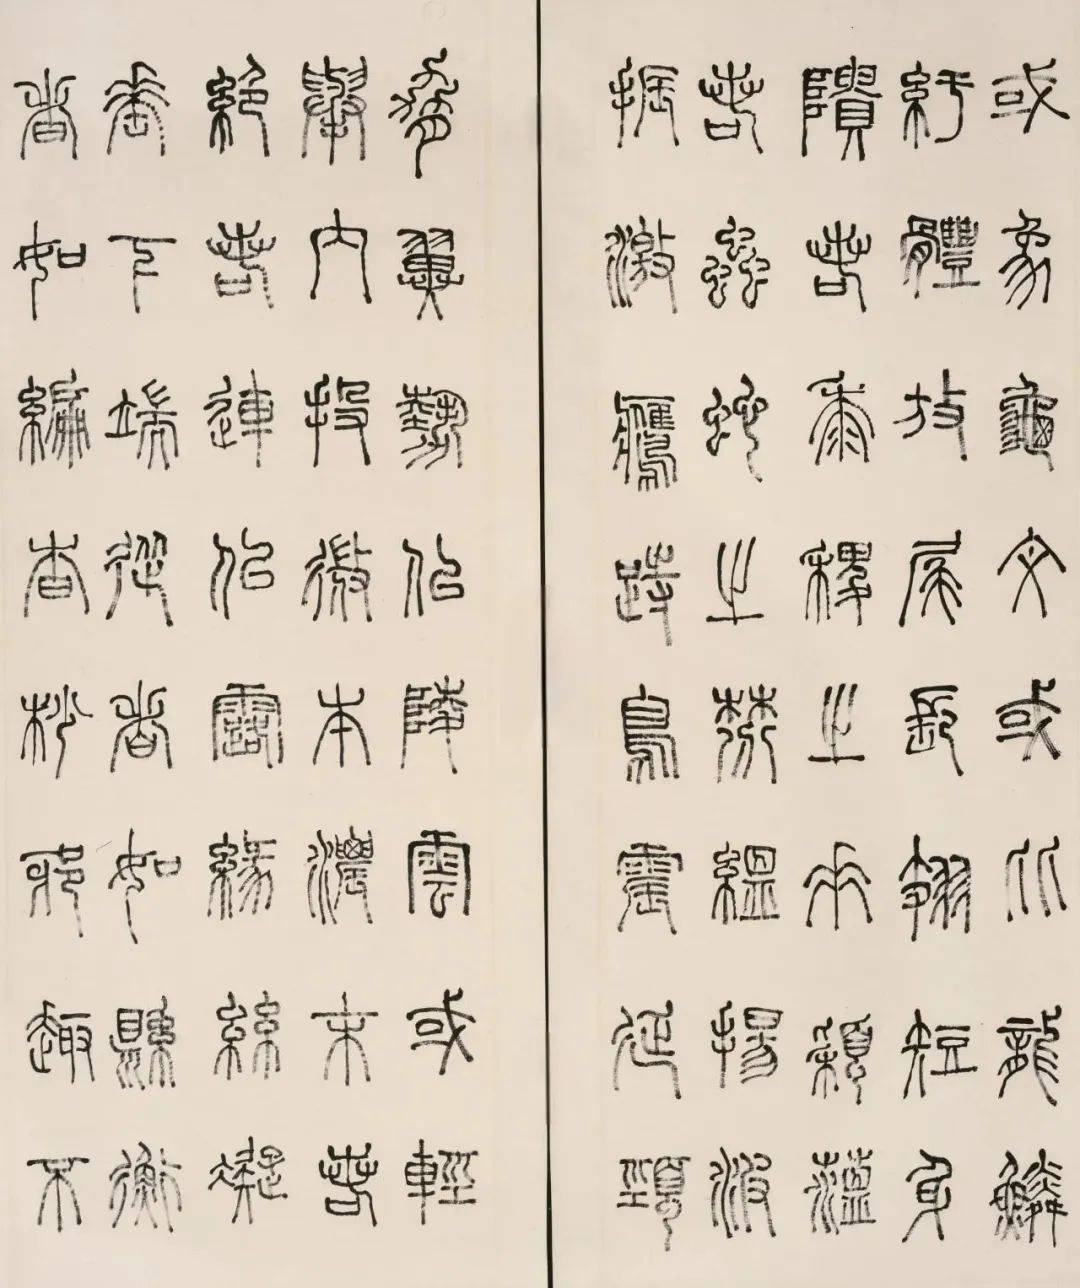 或象龜文或比龍鱗
紓體放尾長翅短身
隤若黍稷之垂穎蘊
若蟲蛇之棼縕揚波
振激鷹跱鳥震延頸
脅翼勢似陵雲或輕
舉內投微本濃末若
絕若連似露緣絲凝
垂下端從者如縣衡
者如編杳杪邪趣不